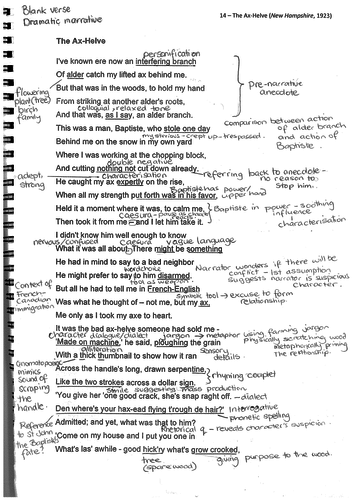 Blank verse
Dramatic narrative
14 – The Ax-Helve (New Hampshire, 1923)
The Ax-Helve
personification
I've known ere now an interfering branch
Of alder catch my lifted ax behind me.
But that was in the woods, to hold my hand
From striking at another alder's roots,
colloquial, relaxed tone
And that was, as I say, an alder branch.
flowering
plant (tree)
birch
family
Pre-narrative
anecdote
This was a man, Baptiste, who stole one day
mysterious - crept up - trespassed
Behind me on the snow in my own yard
Comparison between action
of alder branch
and action of
Baptiste.
Where I was working at the chopping block,
double negative
And cutting nothing not cut down already.
characterisation
He caught my ax expertly on the rise,
adept,
strong
referring back to anecdote -
no reason to
stop him.
Baptiste has power/
upper hand
When all my strength put forth was in his favor,
Held it a moment where it was, to calm me,
Baptiste in power - soothing
influence
characterisation
Then took it from me – and I let him take it.
I didn't know him well enough to know
nervous/confused
caesura
vague language
What it was all about. There might be something
He had in mind to say to a bad neighbor
He might prefer to say to him disarmed.
tool as weapon
Narrator wonders if there will be
conflict - 1st assumption
suggests narrator is suspicious
character.
But all he had to tell me in French-English
Context of
French-
Canadian
immigration
Was what he thought of – not me, but my ax,
Symbolic tool → excuse to form
relationship.
Me only as I took my axe to heart.
It was the bad ax-helve someone had sold me -
character dialogue/dialect
jargon → metaphor using farming jargon
'Made on machine,' he said, ploughing the grain
alliteration
physically scratching wood
metaphorically priming
the relationship.
With a thick thumbnail to show how it ran
sensory
details.
Onomatopoeia
mimics
sound of
scraping
the
handle.
Across the handle's long, drawn serpentine,
Like the two strokes across a dollar sign.
rhyming couplet
simile suggesting mass production
'You give 'er one good crack, she's snap raght off.
- dialect
Den where's your hax-ead flying t'rough de hair?'
Interrogative
phonetic spelling
Admitted; and yet, what was that to him?
Rhetorical q - reveals character's suspicion.
Reference
to St John
the Baptist's
fate?
'Come on my house and I put you one in
What's las' awhile - good hick'ry what's grow crooked,
tree
giving purpose to the wood.